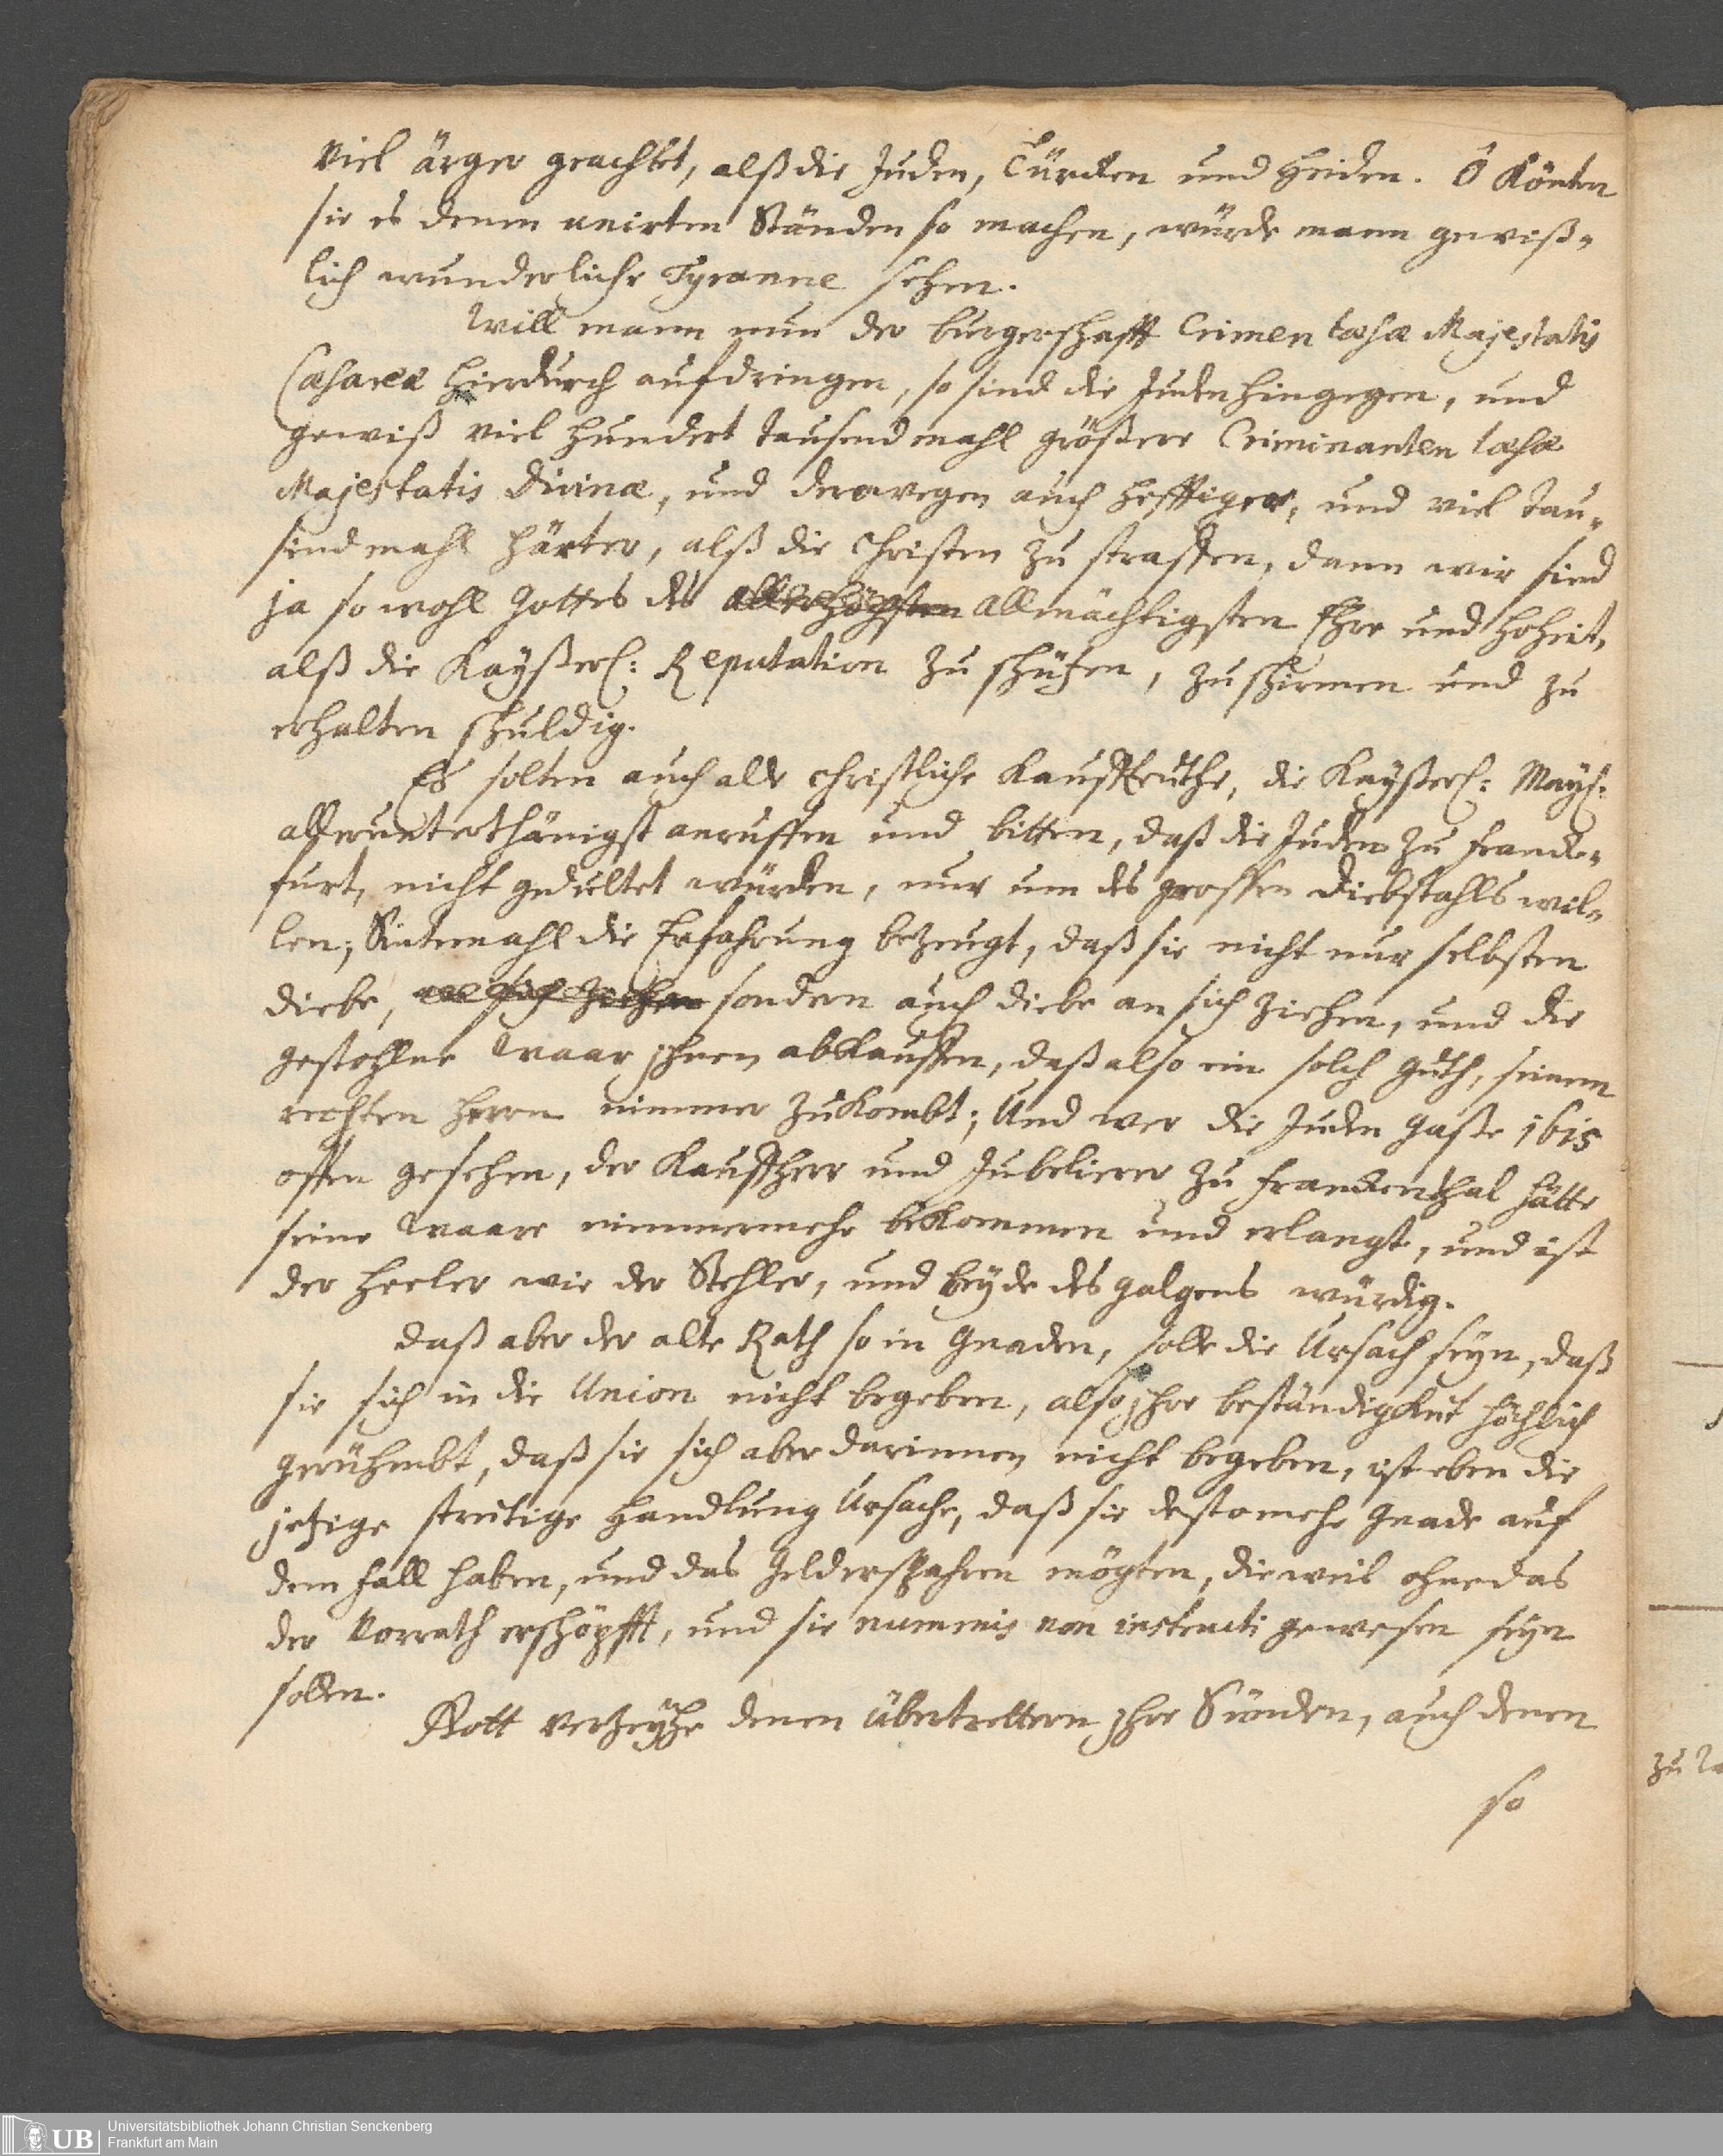 viel ärger geachtet, alß die Juden, Türcken und Heiden. O Könten
sie es denen unirten Ständen so machen, würde mann gewiß-
lich wunderliche Tyranne sehen.
Will mann nun der burgerschafft Crimen læsæ Majestatis
Cæsareæ hierdurch aufdringen, so sind die Juden hingegen, und
gewiß viel hundert tausend mahl größere Criminanten læsæ
Majestatis Divinæ, und derowegen auch hefftiger, und viel tau-
send mahl härter, alß die Christen zu straffen, dann wir sind
ja so wohl Gottes des allerhöchsten allmächtigsten Ehre und Hoheit,
alß die Kayßerl: Reputation zu schützen, zu schirmen und zu
erhalten schuldig.
Es solten auch alle christliche Kauffleuthe, die Kayßerl: Mayt:
allerunterthänigst anruffen und bitten, daß die Juden zu Franck-
furt, nicht gedultet würden, nur um des grossen Diebstahls wil-
len; Sintemahl die Erfahrung bezeugt, daß sie nicht nur selbsten
diebe, an sich ziehen sondern auch diebe an sich ziehen, und die
gestohlne Waar jhnen abkauffen, daß also ein solch guth, seinem
rechten Herrn nimmer zukombt; Und wer die Juden gaße 1615
offen gesehen, der Kauffherr und Jubelierer zu Franckenthal hätte
seine Waare nimmermehr bekommen und erlangt, und ist
der Heeler wie der Stehler, und beyde des galgens würdig.
Daß aber der alte Rath so in Gnaden, solle die Ursach seyn, daß
sie sich in die Union nicht begeben, also jhre beständigkeit höchlich
gerühmbt, daß sie sich aber darinnen nicht begeben, ist eben die
jetzige streitige Handlung Ursache, daß sie desto mehr Gnade auf
dem fall haben, und das Geld erspahren mögten, dieweil ohne das
der Vorrath erschöpfft, und sie nummis non instructi gewesen seyn
sollen.
Gott verzeyhe denen Übertrettern jhre Sünden, auch denen
so
zu
UB
Universitätsbibliothek Johann Christian Senckenberg
Frankfurt am Main